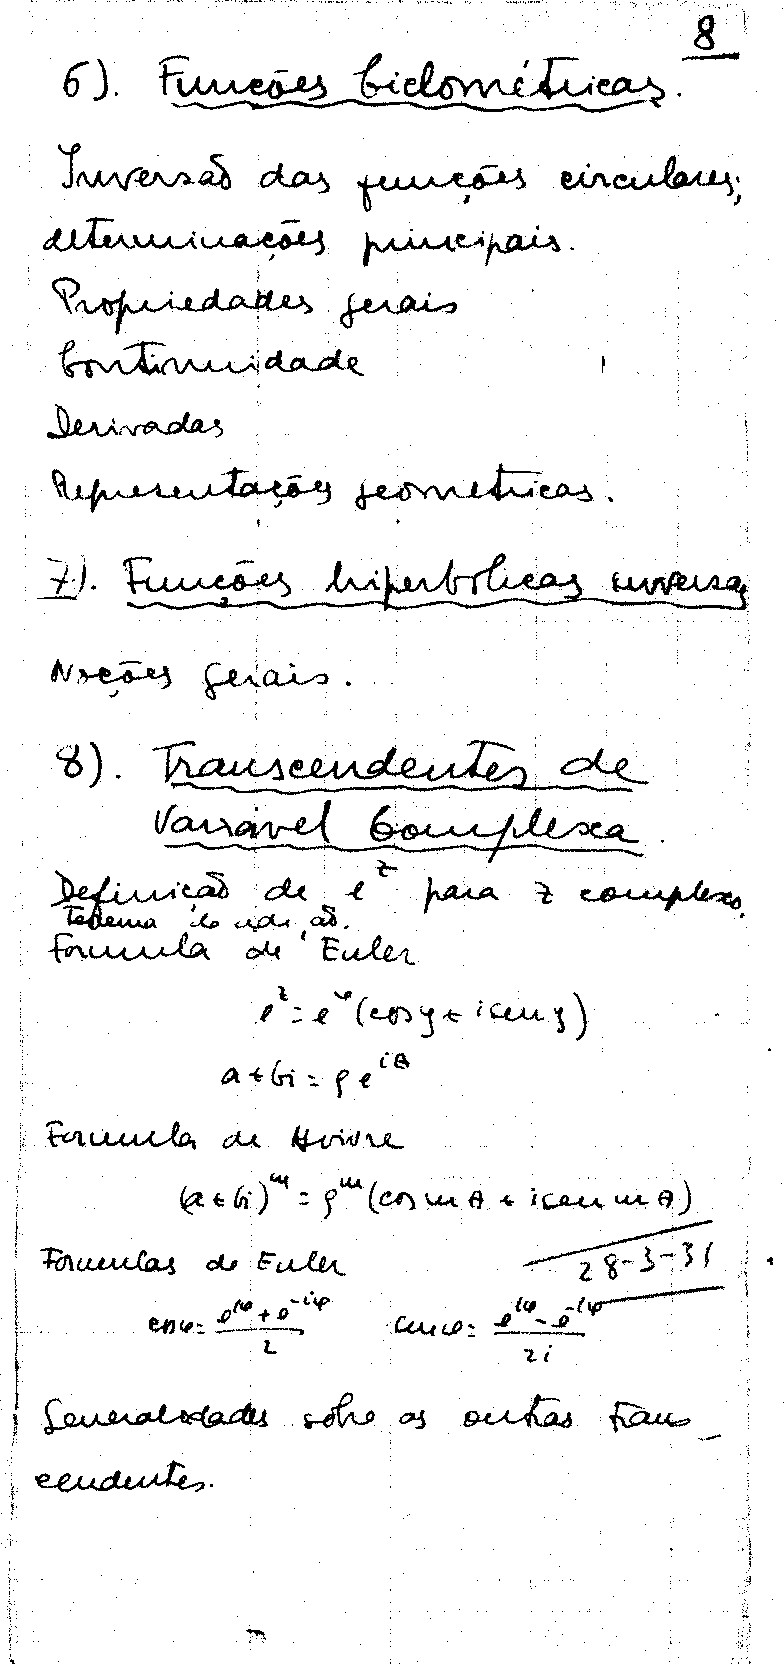 8
6). Funções Ciclométricas.
Inversão das funções circulares;
determinações principais.
Propriedades gerais
Continuidade
Derivadas
Representações geometricas.
7). Funções hiperbólicas inversas
Noções gerais.
8). Transcendentes de
Variável Complexa.
Definição de e^z para z complexo.
Teorema ão.
Formula de Euler
e^z = e^x (cos y + i sen y)
a + bi = ρ e^{iθ}
Formula de Moivre
(a + bi)^m = ρ^m (cos m θ + i sen m θ)
Formulas de Euler 28-3-31
cos φ = (e^{iφ} + e^{-iφ}) / 2 sen φ = (e^{iφ} - e^{-iφ}) / 2i
Generalidades sobre as outras trans_
cendentes.